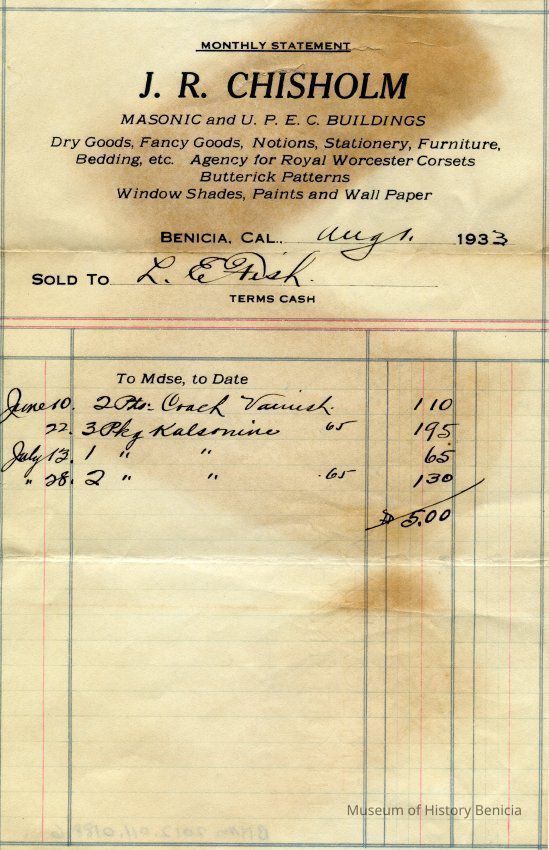 MONTHLY STATEMENT
J. R. CHISHOLM
MASONIC and U. P. E. C. BUILDINGS
Dry Goods, Fancy Goods, Notions, Stationery, Furniture,
Bedding, etc. Agency for Royal Worcester Corsets
Butterick Patterns
Window Shades, Paints and Wall Paper
BENICIA, CAL., Aug 1. 1933
SOLD TO L. E. Fish.
TERMS CASH
To Mdse, to Date
June 10. 2 Pts. Coach Varnish. 1 10
22. 3 Pkg Kalsomine 65 1 95
July 13. 1 " " 65
" 28. 2 " " .65 1 30
$ 5.00
Museum of History Benicia